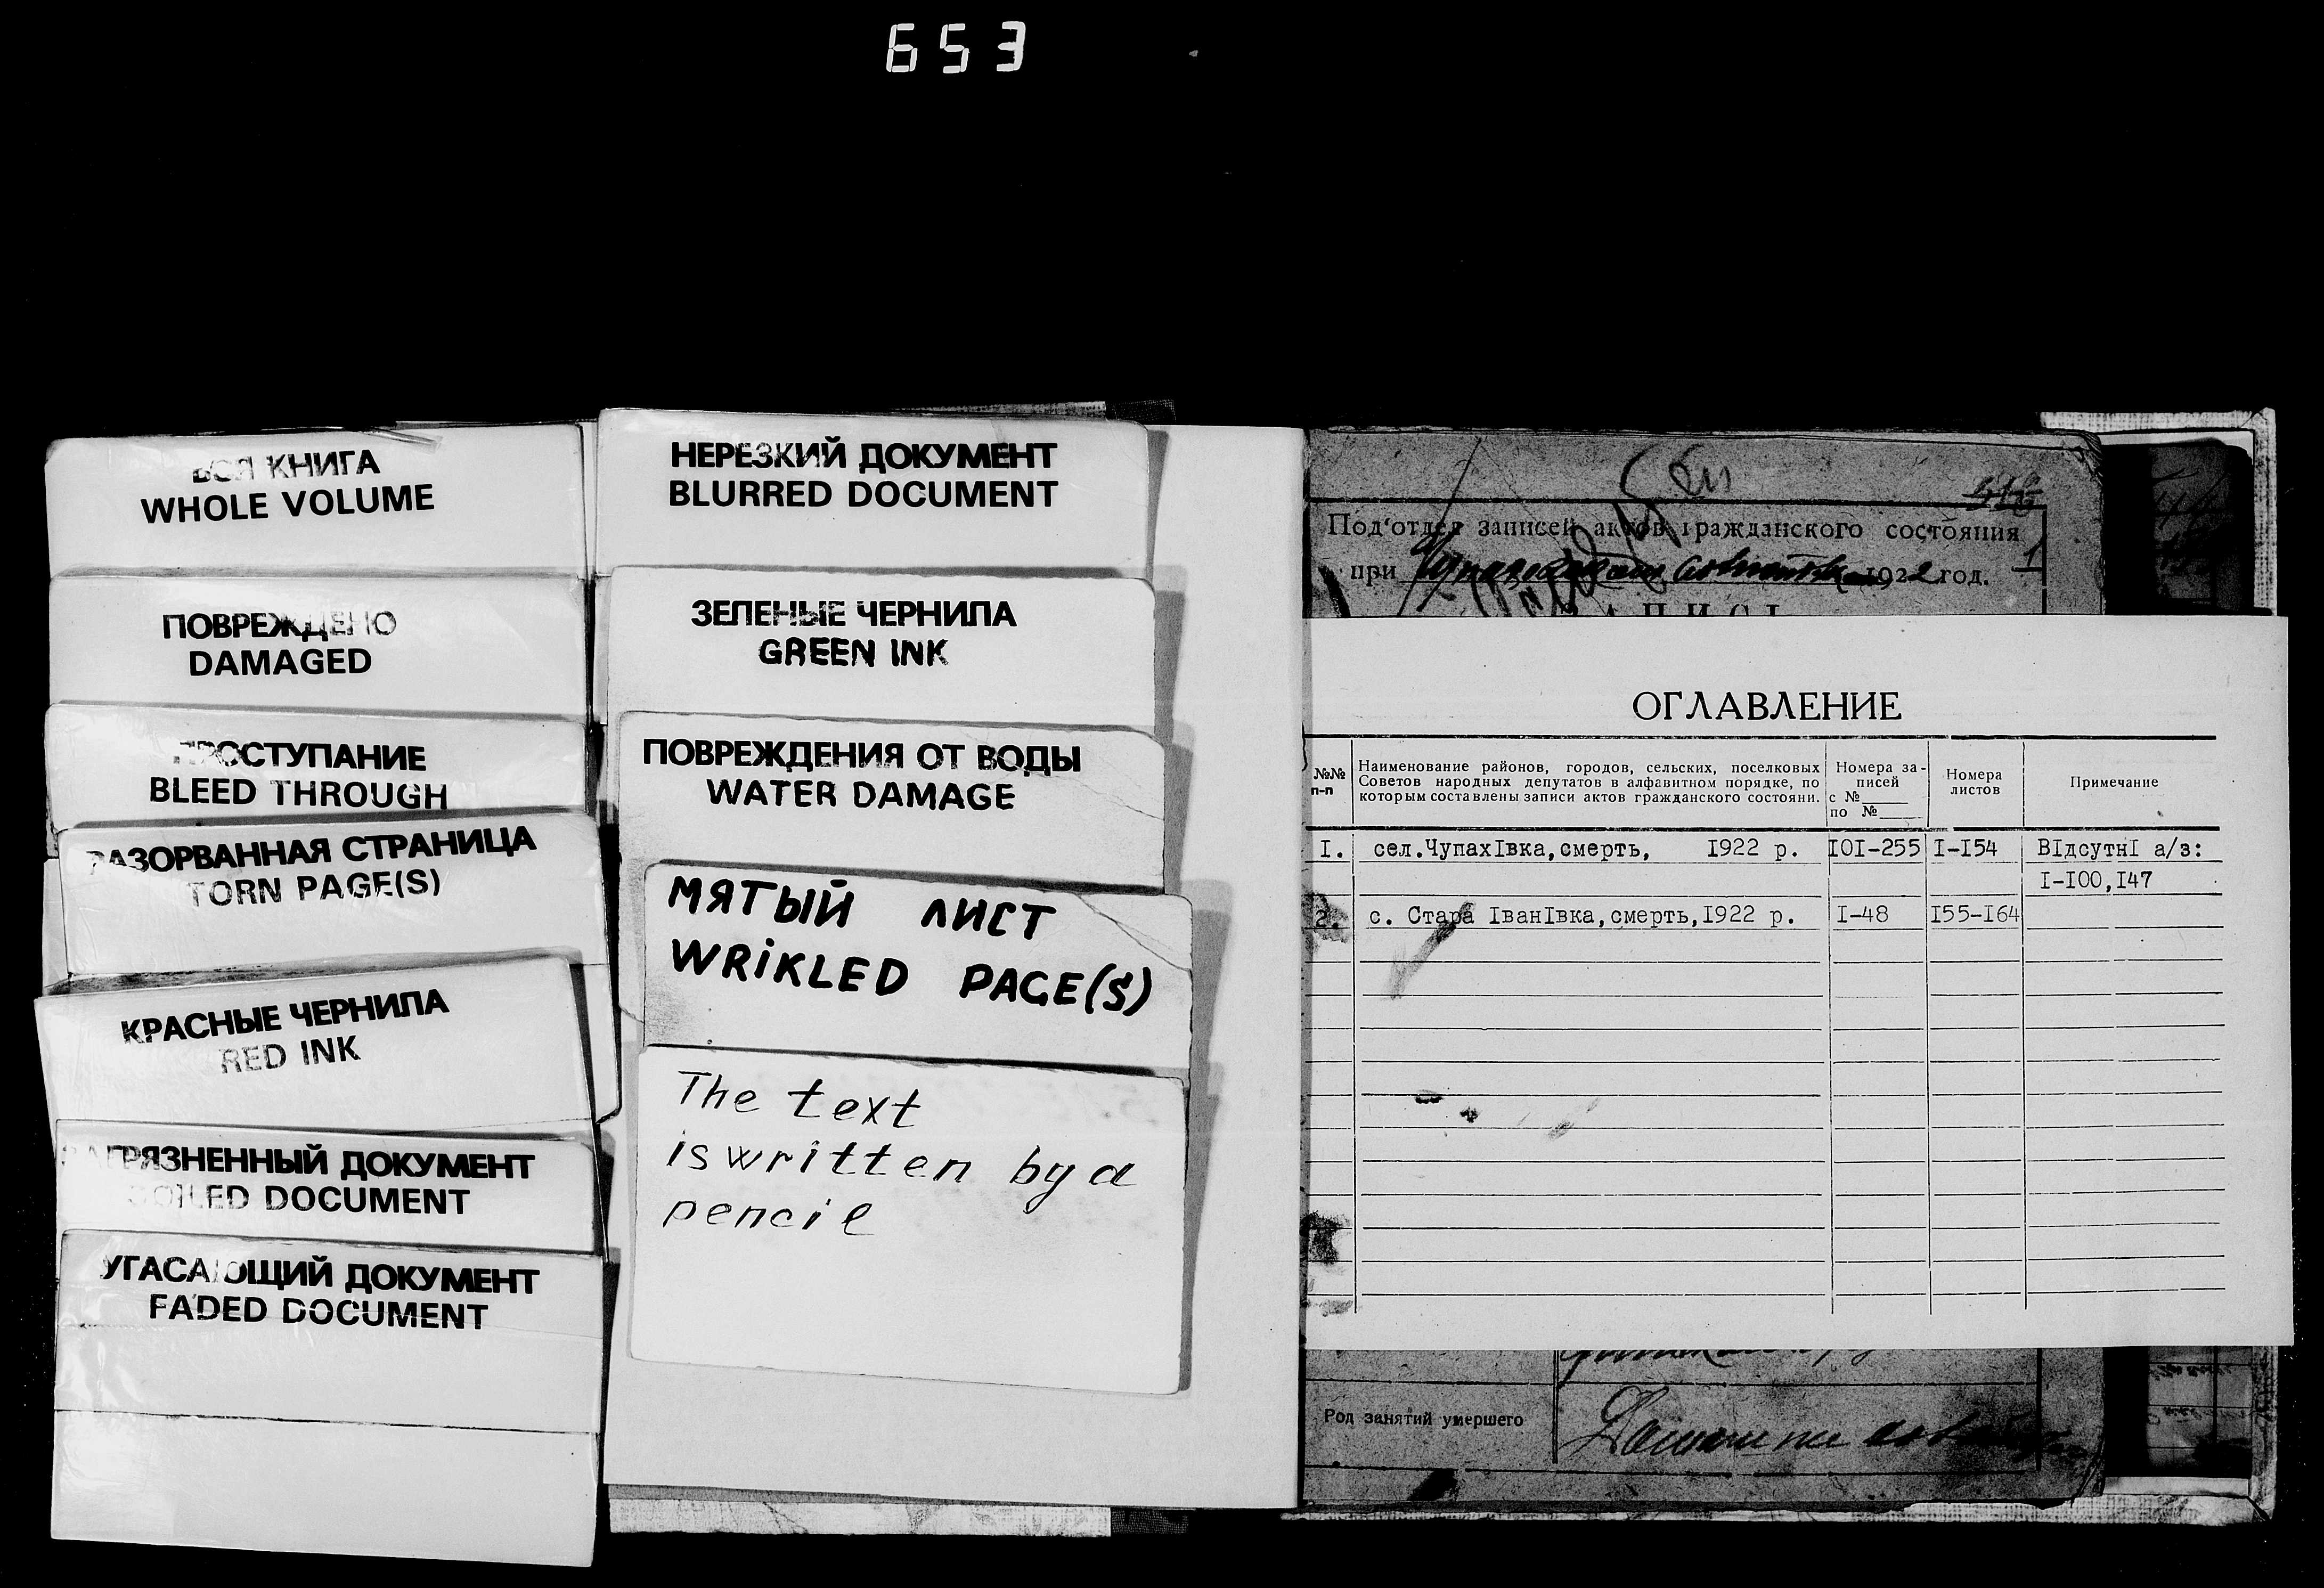 653
ВСЯ КНИГА
WHOLE VOLUME
ПОВРЕЖДЕНО
DAMAGED
ПРОСТУПАНИЕ
BLEED THROUGH
РАЗОРВАННАЯ СТРАНИЦА
TORN PAGE(S)
КРАСНЫЕ ЧЕРНИЛА
RED INK
ЗАГРЯЗНЕННЫЙ ДОКУМЕНТ
SOILED DOCUMENT
УГАСАЮЩИЙ ДОКУМЕНТ
FADED DOCUMENT
НЕРЕЗКИЙ ДОКУМЕНТ
BLURRED DOCUMENT
ЗЕЛЕНЫЕ ЧЕРНИЛА
GREEN INK
ПОВРЕЖДЕНИЯ ОТ ВОДЫ
WATER DAMAGE
МЯТЫЙ ЛИСТ
WRiKLED PAGE(S)
The text
is written by a
pencil
Под'отдел записей актов гражданского состояния
при 1922 год. 1
ОГЛАВЛЕНИЕ
№№ п-п
Наименование районов, городов, сельских, поселковых
Советов народных депутатов в алфавитном порядке, по
которым составлены записи актов гражданского состояни.
Номера за-
писей
с №____
по №____
Номера
листов
Примечание
I. сел.ЧупахIвка,смерть, I922 р. IOI-255 I-I54 ВIдсутнI а/з:
I-I00,I47
2. с. Стара IванIвка,смерть,I922 р. I-48 I55-I64
Род занятий умершего